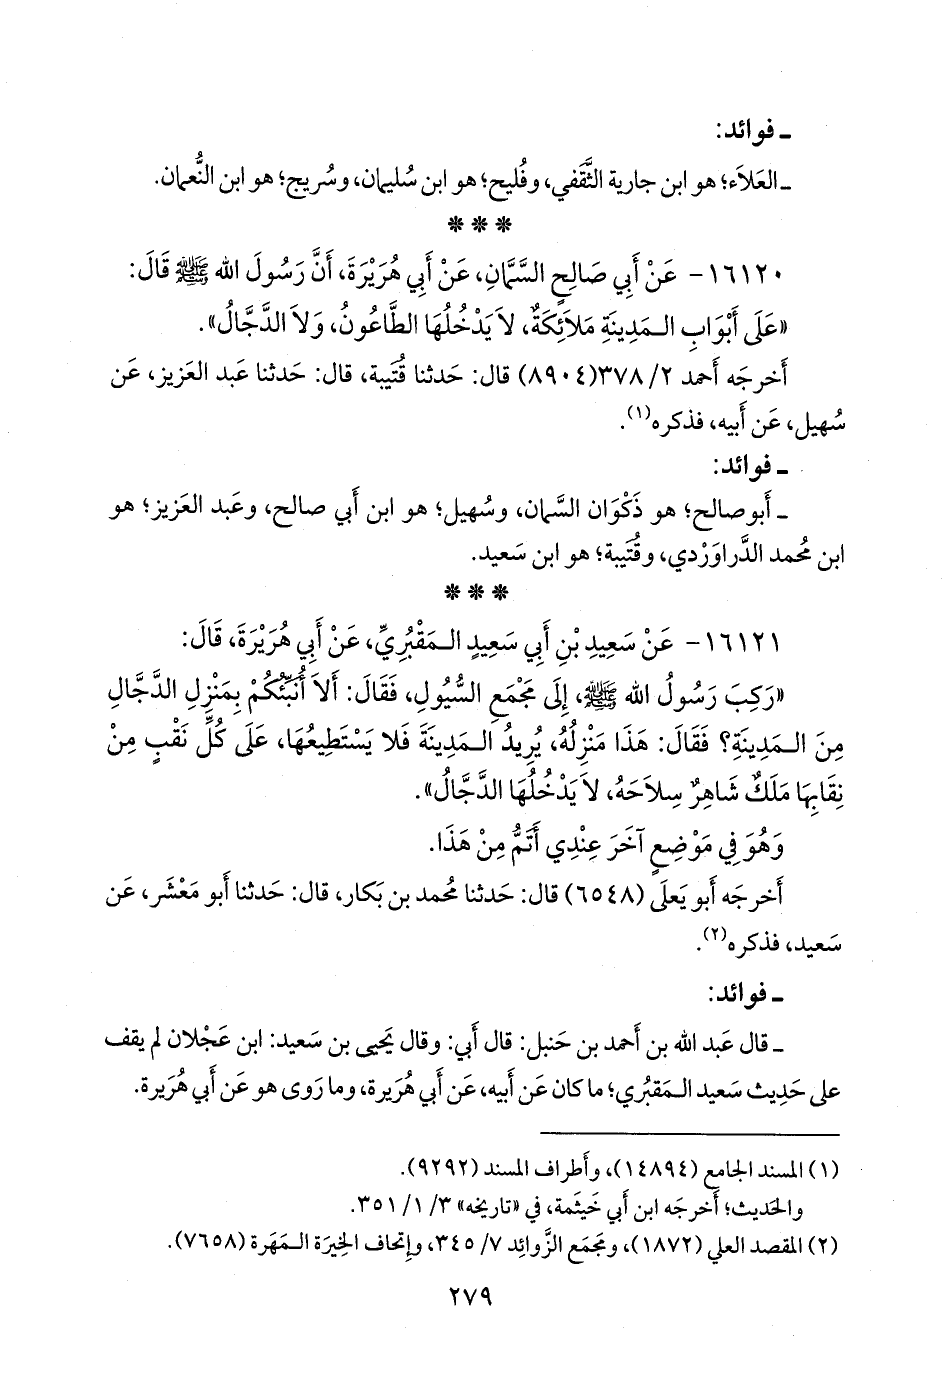 ـ فوائد:
ـ العَلاَء؛ هو ابن جارية الثَّقَفي، وفُليح؛ هو ابن سُليمان، وسُريج؛ هو ابن النُّعمان.
* * *
١٦١٢٠- عَنْ أَبِي صَالِحٍ السَّمَّانِ، عَنْ أَبِي هُرَيْرَةَ، أَنَّ رَسُولَ الله ﷺ قَالَ:
«عَلَى أَبْوَابِ الـمَدِينَةِ مَلاَئِكَةٌ، لاَ يَدْخُلُهَا الطَّاعُونُ، وَلاَ الدَّجَّالُ».
أَخرجَه أَحمد ٢/ ٣٧٨(٨٩٠٤) قال: حَدثنا قُتَيبة، قال: حَدثنا عَبد العَزيز، عَن
سُهيل، عَن أَبيه، فذكره(١).
ـ فوائد:
ـ أَبو صالح؛ هو ذَكْوَان السَّمان، وسُهيل؛ هو ابن أَبي صالح، وعَبد العَزيز؛ هو
ابن مُحمد الدَّراوَرْدي، وقُتَيبة؛ هو ابن سَعيد.
* * *
١٦١٢١- عَنْ سَعِيدِ بْنِ أَبِي سَعِيدٍ الـمَقْبُرِيِّ، عَنْ أَبِي هُرَيْرَةَ، قَالَ:
«رَكِبَ رَسُولُ الله ﷺ، إِلَى مَجْمَعِ السُّيُولِ، فَقَالَ: أَلاَ أُنَبِّئُكُمْ بِمَنْزِلِ الدَّجَّالِ
مِنَ الـمَدِينَةِ؟ فَقَالَ: هَذَا مَنْزِلُهُ، يُرِيدُ الـمَدِينَةَ فَلا يَسْتَطِيعُهَا، عَلَى كُلِّ نَقْبٍ مِنْ
نِقَابِهَا مَلَكٌ شَاهِرٌ سِلاَحَهُ، لاَ يَدْخُلُهَا الدَّجَّالُ».
وَهُوَ فِي مَوْضِعٍ آخَرَ عِنْدِي أَتَمُّ مِنْ هَذَا.
أَخرجَه أَبو يَعلَى (٦٥٤٨) قال: حَدثنا مُحمد بن بَكار، قال: حَدثنا أَبو مَعْشَر، عَن
سَعيد، فذكره(٢).
ـ فوائد:
ـ قال عَبد الله بن أَحمد بن حَنبل: قال أَبي: وقال يَحيى بن سَعيد: ابن عَجْلان لم يقف
على حَدِيث سَعيد الـمَقبُري؛ ما كان عَن أَبيه، عَن أَبي هُرَيرة، وما رَوى هو عَن أَبي هُرَيرة.
(١) المسند الجامع (١٤٨٩٤)، وأَطراف المسند (٩٢٩٢).
والحَديث؛ أَخرجَه ابن أَبي خَيثَمة، في «تاريخه» ٣/ ١/ ٣٥١.
(٢) المقصد العلي (١٨٧٢)، ومَجمَع الزَّوائِد ٧/ ٣٤٥، وإتحاف الخِيرَة الـمَهَرة (٧٦٥٨).
٢٧٩